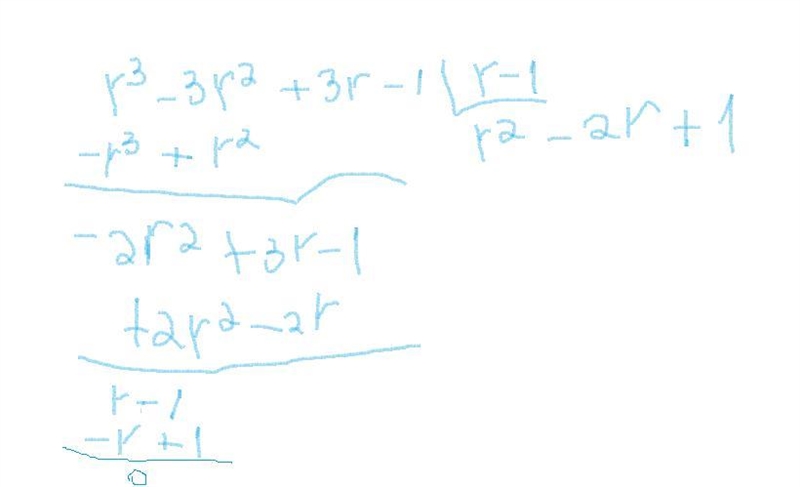 r³ - 3r² + 3r - 1 | r - 1
-r³ + r² r² - 2r + 1
-2r² + 3r - 1
+2r² - 2r
r - 1
-r + 1
0